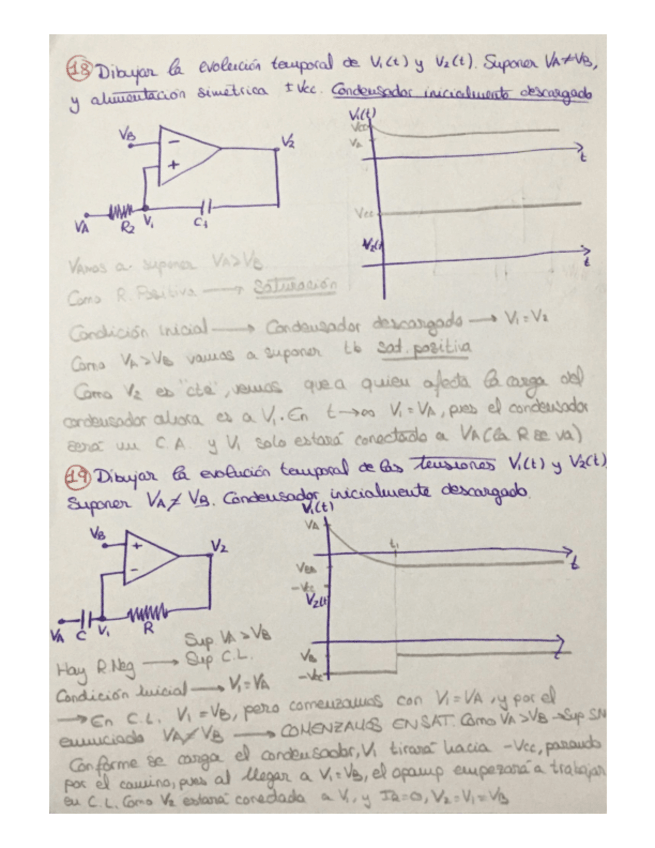 18 Dibujar la evolución temporal de V1(t) y V2(t). Suponer VA≠VB,
y alimentación simétrica ±Vcc. Condensador inicialmente descargado
V1(t)
Vcc
VA
t
VB
-
+
V2
VA
R2
V1
C1
Vcc
V2(t)
t
Vamos a suponer VA>VB
Como R. Positiva → Saturación
Condición inicial → Condensador descargado → V1=V2
Como VA>VB vamos a suponer tb sat. positiva
Como V2 es "cte", vemos que a quien afecta la carga del
condensador ahora es a V1. En t→∞ V1=VA, pues el condensador
será un C.A. y V1 solo estará conectado a VA (la R se va)
19 Dibujar la evolución temporal de las tensiones V1(t) y V2(t)
Suponer VA≠VB. Condensador inicialmente descargado.
V1(t)
VA
t1
t
-Vcc
V2(t)
VB
+
-
V2
VA
C
V1
R
VB
-Vcc
t
Sup VA>VB
Hay R.Neg → Sup C.L.
Condición Inicial → V1=VA
→ En C.L. V1=VB, pero comenzamos con V1=VA, y por el
enunciado VA≠VB → COMENZAMOS EN SAT. Como VA>VB → Sup SN
Conforme se carga el condensador, V1 tirará hacia -Vcc, pasando
por el camino, pues al llegar a V1=VB, el opamp empezará a trabajar
en C.L. Como V2 estará conectada a V1, y IR=0, V2=V1=VB